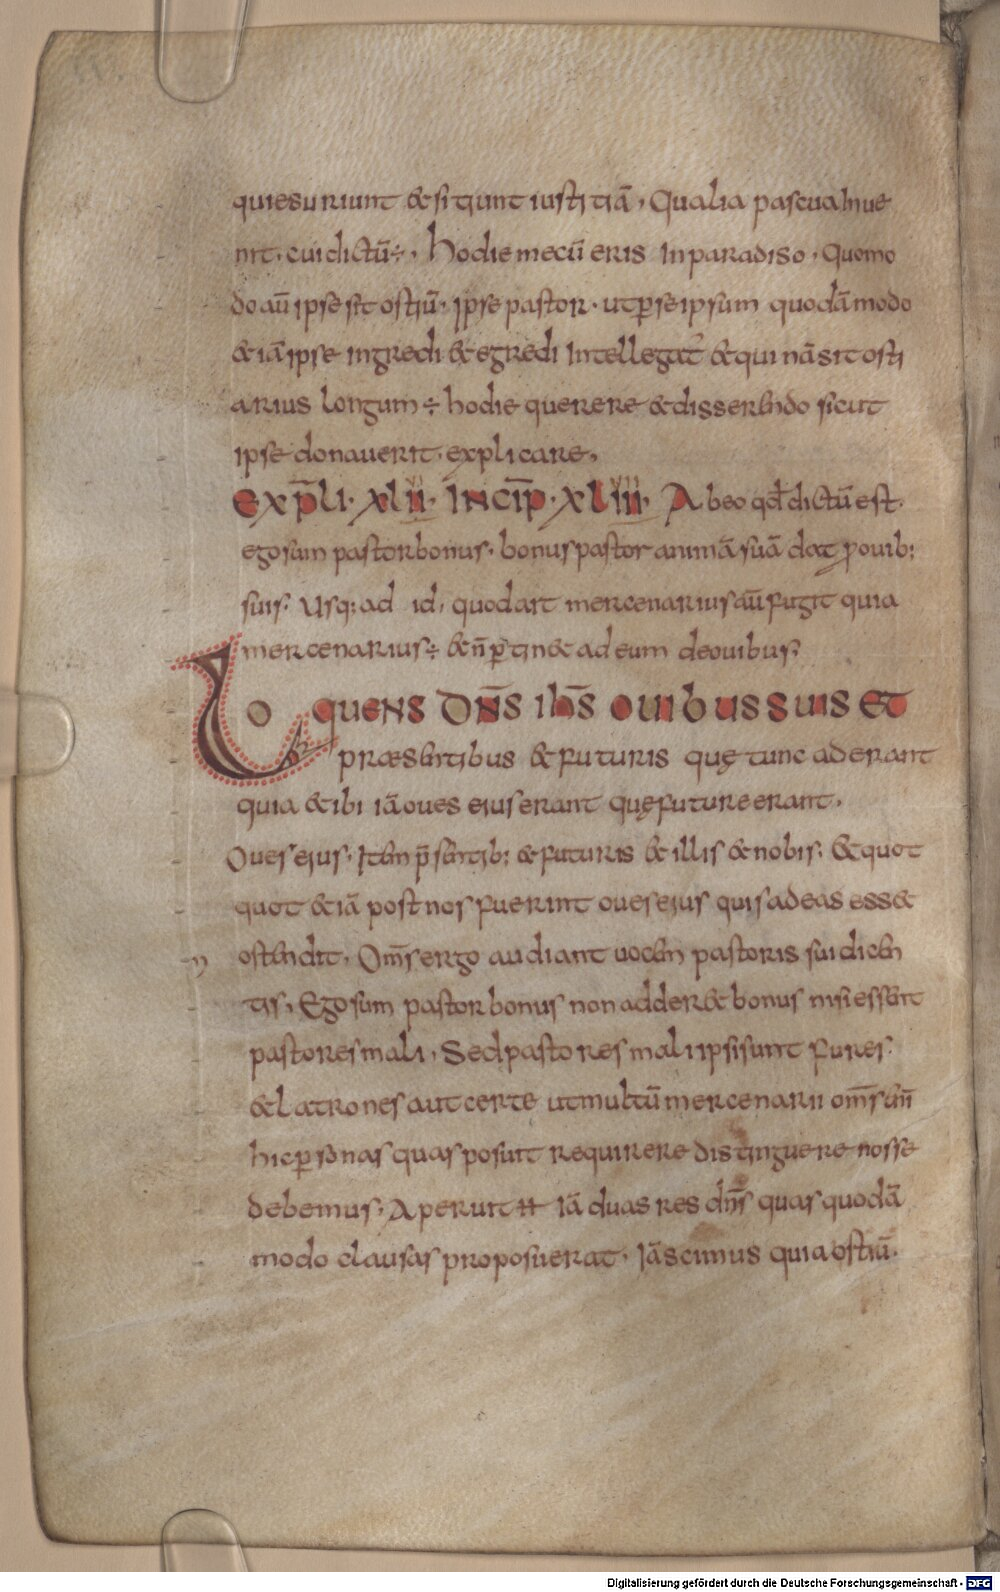 quiesuriunt & sitiunt iustitiā, Qualia pascua Inue
nit, cui dictū ÷, Hodie mecū eris In paradiso, Quomo
do aū ipse sit ostiū, ipse pastor, ut ꝑ se ipsum quodāmodo
& iā ipse ingredi & egredi Intellegat᷒ & qui nā sit osti
arius longum ÷ hodie querere & disserendo sicut
ipse donauerit, explicare,
Expli. xlii. Incip̄. xliii. Ab eo qđ dictū est.
ego sum pastor bonus. bonus pastor animā suā dat ꝓ ouib;
suis. Usq; ad id, quod ait mercenarius aū fugit quia
mercenarius ÷ & n̄ ꝑtin& ad eum de ouibus;
Loquens dn̄s ih̄s ouibus suis et
præsentibus & futuris quę tunc aderant
quia & ibi iā oues eius erant quę future erant.
Oues eius. Item p̄sentib; & futuris & illis & nobis. & quot
quot & iā post nos fuerint oues eius quis ad eas ess&
ostendit, Om̄s ergo audiant uocem pastoris sui dicen
tis, Ego sum pastor bonus non adder& bonus nisi essent
pastores mali, Sed pastores mali ipsi sunt fures.
& latrones aut certe ut multū mercenarii om̄s en̄
hic ꝑsonas quas posuit requirere distinguere nosse
debemus. Aperuit H iā duas res dn̄s quas quodā
modo clausas proposuerat, Iā scimus quia ostiū.
Digitalisierung gefördert durch die Deutsche Forschungsgemeinschaft - DFG